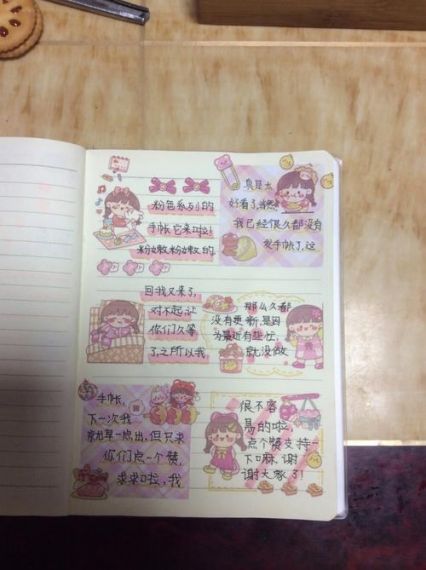 粉色系列的
手帐它来啦!
粉嫩粉嫩的,
真是太
好看了,当然
我已经很久都没有
发手帐了,这
回我又来了,
对不起,让
你们久等
了,之所以我
那么久都
没有更新,是因
为最近有些忙,
就没做
手帐,
下一次我
就早一点出,但只求
你们点一个赞,
求求啦,我
很不容
易的啦,
点个赞支持一
下嘛,谢
谢大家了!